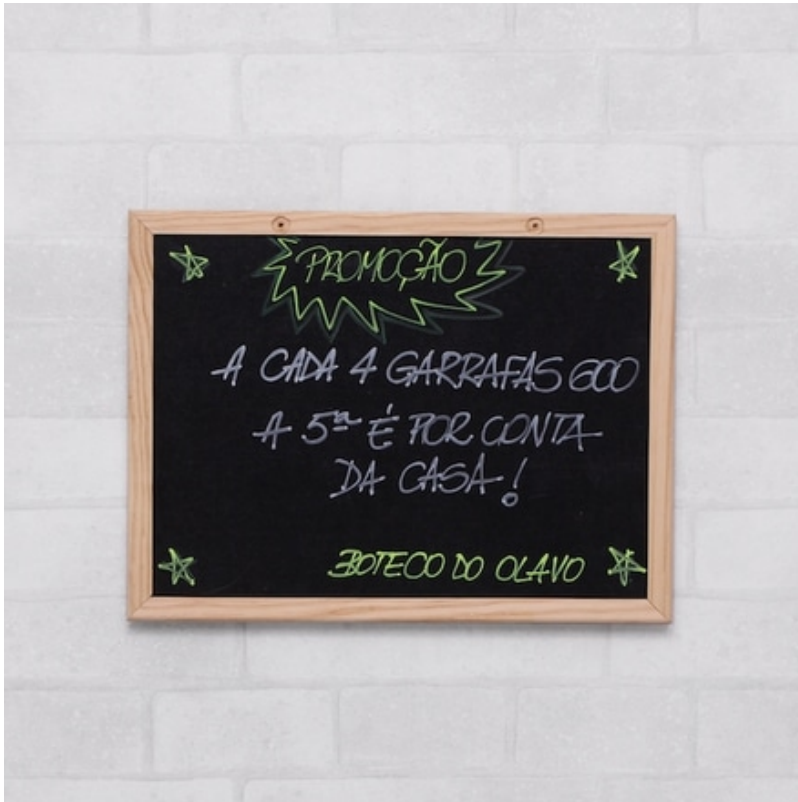 PROMOÇÃO
A CADA 4 GARRAFAS 600
A 5ª É POR CONTA
DA CASA!
BOTECO DO OLAVO